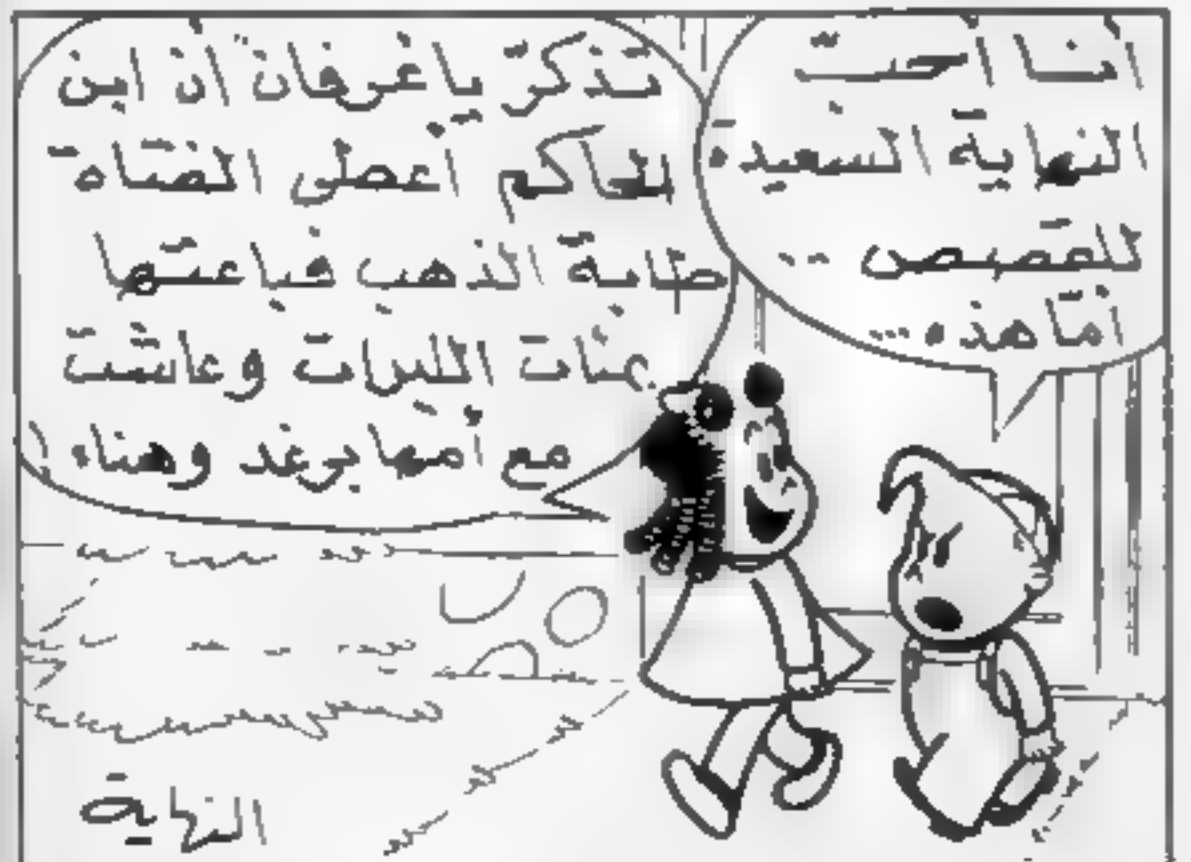 أنا أحبّ
النهاية السعيدة
للقصص ..
أمّا هذه ...
تذكرّ يا غرفان أن ابن
الحاكم أعطى الفتاة
طابة الذهب فباعتها
بمئات الليرات وعاشت
مع أمها برغد وهناء !
النهاية